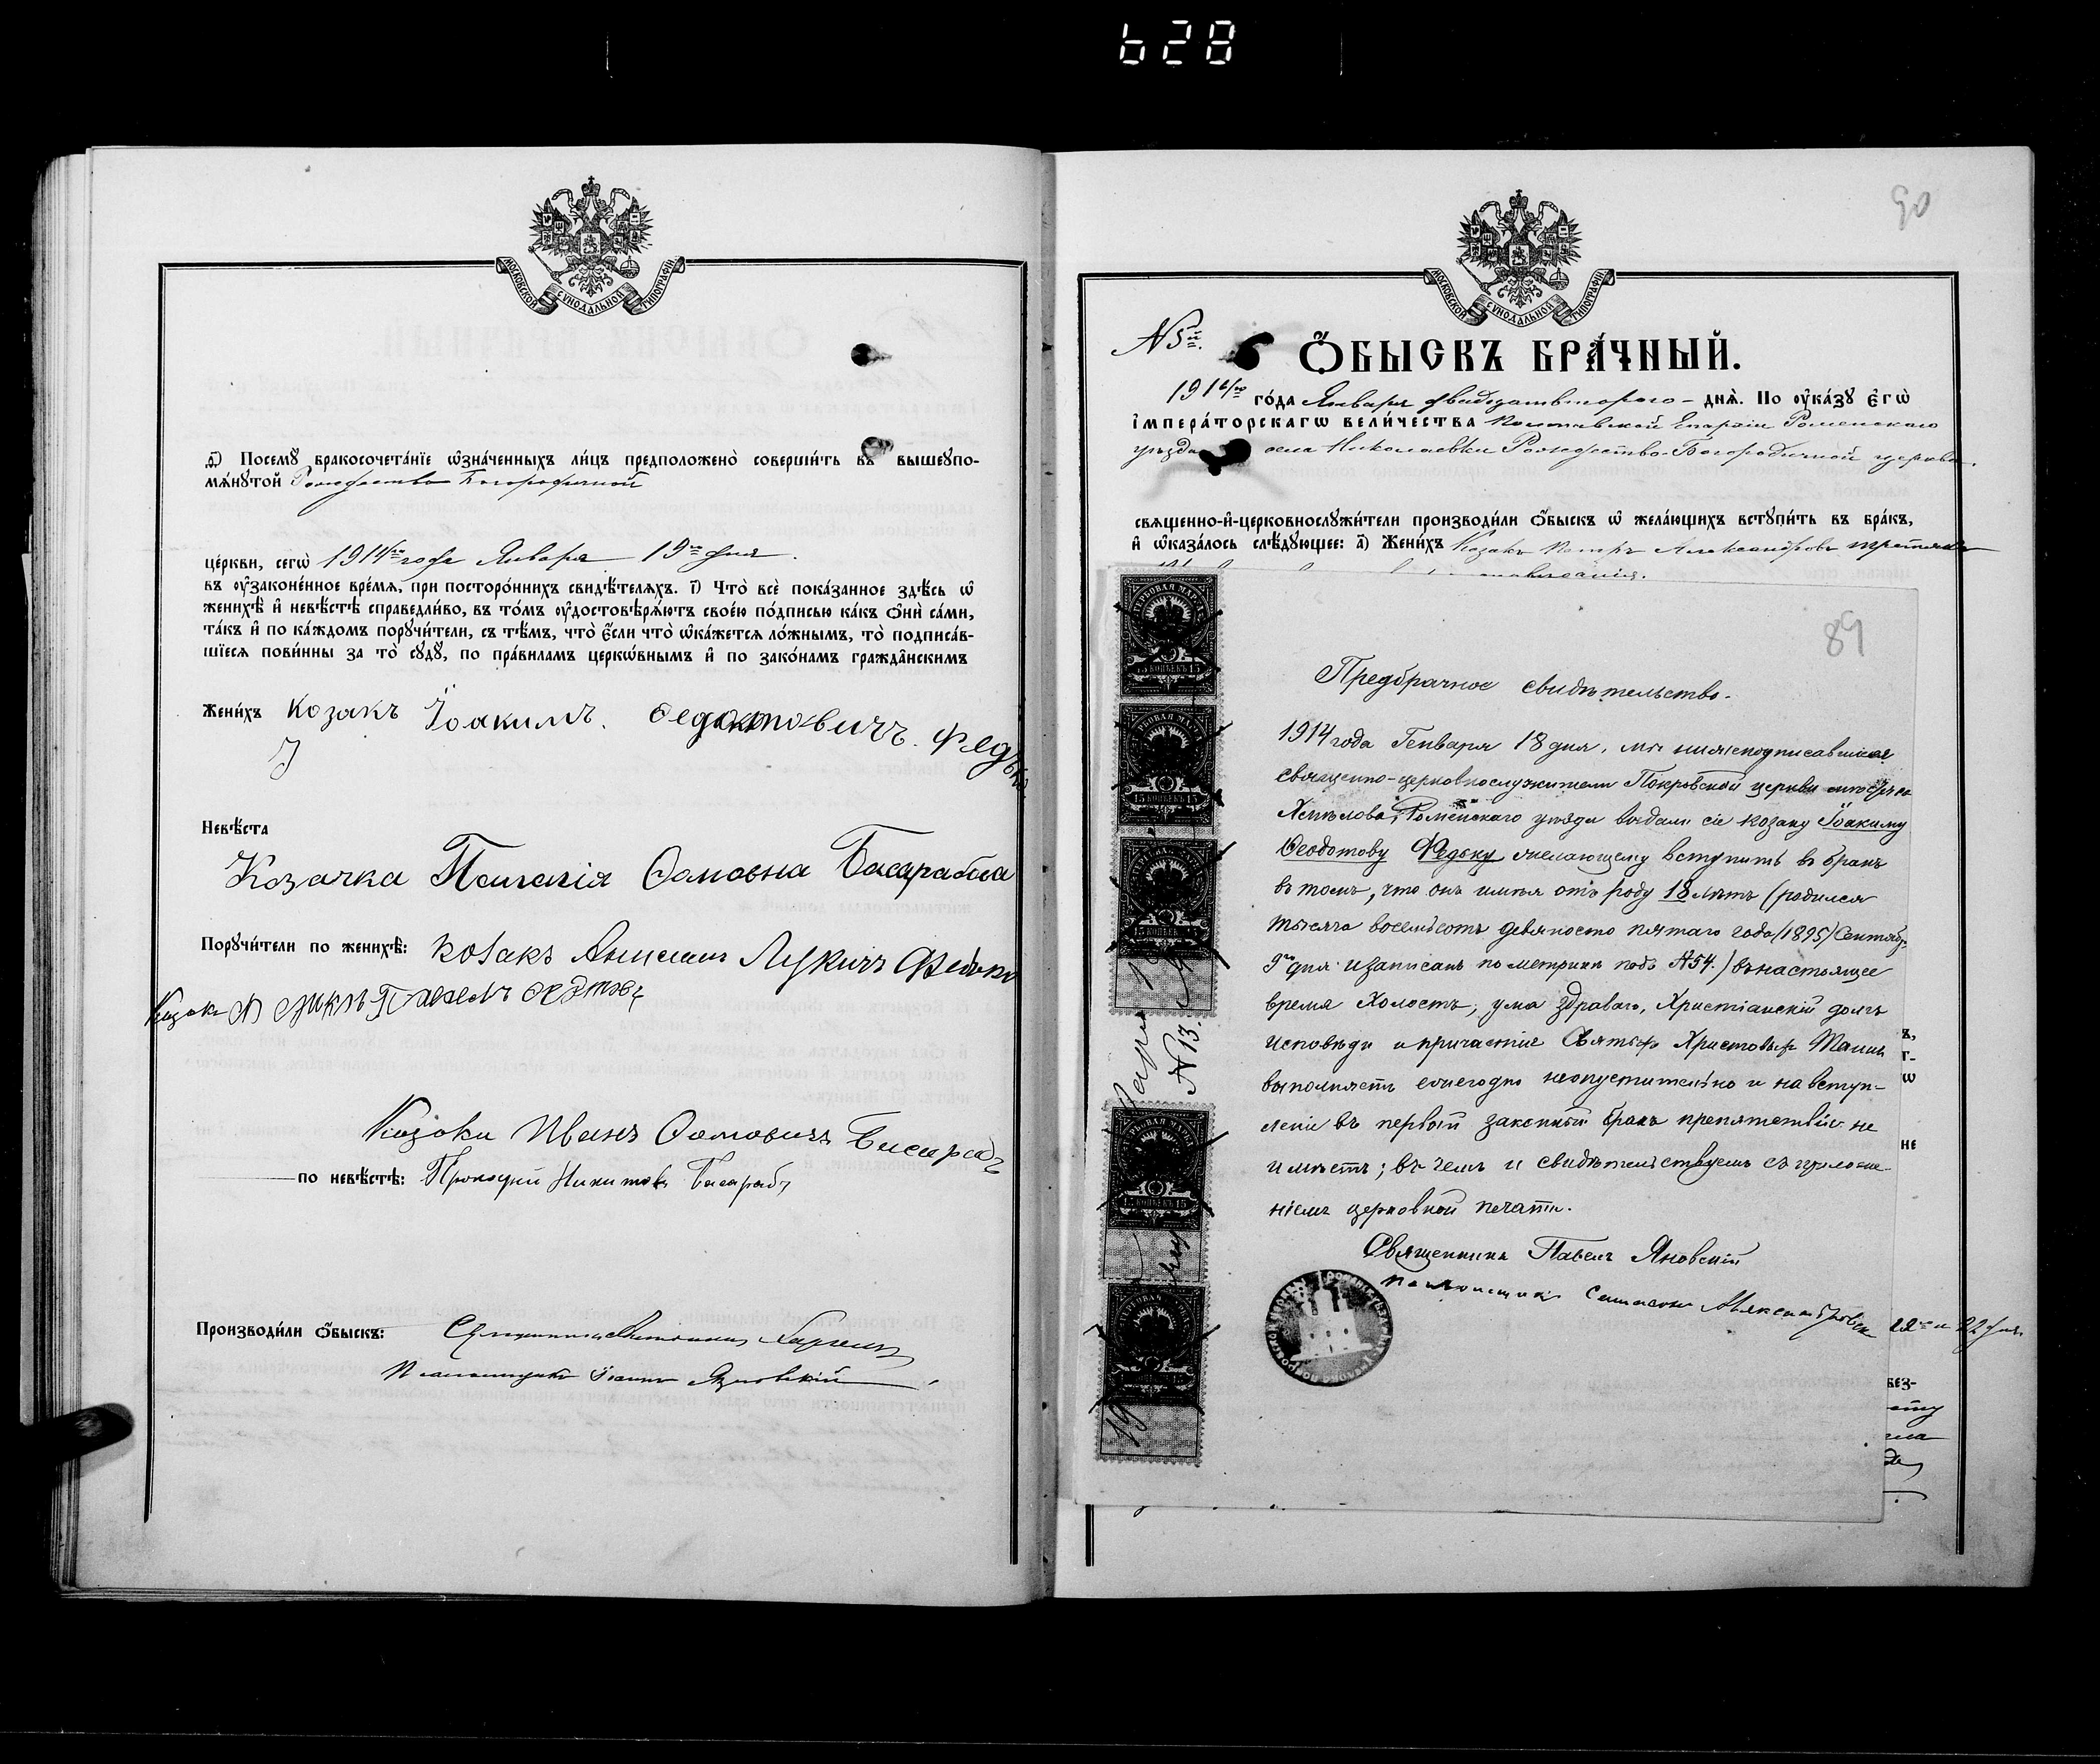 628
МОСКОВСКОЙ СѴНОДАЛЬНОЙ ТИПОГРАФІИ
Посемꙋ̀ бракосочета́нїе ѡ҆зна́ченныхъ ли́цъ предположено̀ соверши́ть въ вышеꙋпо-
мѧ́нꙋтой Рождество Богородичной
це́ркви, сегѡ̀ 1914го года Января 19го дня.
въ ᲂу҆зако́ненное вре́мѧ, при посторо́ннихъ свидѣ́телѧхъ. і҃) Что̀ всѐ пока́занное здѣ́сь ѡ҆
женихѣ̀ и҆ невѣ́стѣ справедли́во, въ то́мъ ᲂу҆достовѣрѧ́ютъ свое́ю по́дписью ка́къ ѻ҆нѝ са́ми,
та́къ и҆ по ка́ждомъ порꙋчи́тели, съ тѣ́мъ, что̀ є҆́сли что̀ ѡ҆ка́жется ло́жнымъ, то̀ подписа́в-
шїеся пови́нны за то̀ сꙋдꙋ̀, по пра́виламъ церко́внымъ и҆ по зако́намъ гражда́нскимъ
Жени́хъ Козакъ Іоакимъ Федотовичъ Федько
Невѣ́ста
Козачка Пелагія Фомовна Басарабова
Порꙋчи́тели по женихѣ̀: козакъ Анисимъ Лукичъ Федько
Козаки Иванъ Фомовичъ Басарабъ
по невѣ́стѣ: Прокофій Никитовъ Басарабъ
Производи́ли ѻ҆́быскъ:
Псаломщикъ Іоаннъ
90
МОСКОВСКОЙ СѴНОДАЛЬНОЙ ТИПОГРАФІИ
N 5й. 6 Ѻ҆́БЫСКЪ БРА́ЧНЫЙ.
1914го го́да Января двадцатвторого - днѧ̀. По ᲂу҆ка́зꙋ є҆гѡ̀
і҆мпера́торскагѡ вели́чества Полтавской Епархіи Роменскаго
уѣзда села Николаевки Рождество-Богородичной церкви.
свѧще́нно-и҆-церковнослꙋжи́тели производи́ли ѻ҆́быскъ ѡ҆ жела́ющихъ встꙋпи́ть въ бра́къ,
и҆ ѡ҆каза́лось слѣ́дꙋющее: а҃) Жени́хъ Козакъ Петръ Александровъ
89
Предбрачное свидѣтельство.
1914 года Генваря 18 дня, мы нижеподписавшіеся
священно-церковнослужители Покровской церкви мѣстечка
Хмѣлова, Роменскаго уѣзда выдали сіе козаку Іоакиму
Феодотову Федьку желающему вступить въ бракъ
въ томъ, что онъ имѣя отъ роду 18 лѣтъ (родился
тысяча восемьсотъ девяносто пятаго года (1895) Сентябр.
9го дня и записанъ по метрикѣ подъ N54.) въ настоящее
время холостъ, ума здраваго, Христіанскій долгъ
исповѣди и причастія Святыхъ Христовыхъ Таинъ
выполняетъ ежегодно неопустительно и на вступ-
леніе въ первый законный бракъ препятствій не
имѣетъ; въ чемъ и свидѣтельствуемъ съ приложе-
ніемъ церковной печати.
Священникъ Павелъ Яновскій
Псаломщикъ
N 13.
ГЕРБОВАЯ МАРКА
15 КОПѢЕКЪ 15
22 дня